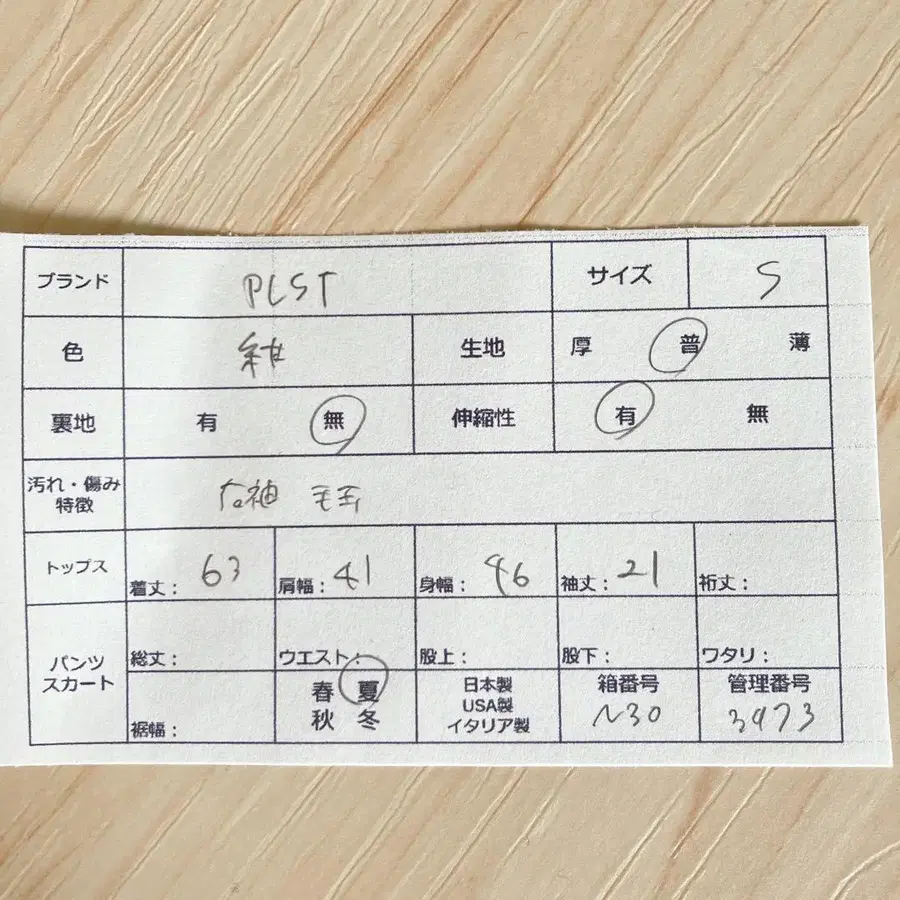 ブランド PLST サイズ S
色 紺 生地 厚 普 薄
裏地 有 無 伸縮性 有 無
汚れ・傷み
特徴 右袖 毛玉
トップス 着丈: 63 肩幅: 41 身幅: 46 袖丈: 21 裄丈:
パンツ
スカート 総丈: ウエスト: 股上: 股下: ワタリ:
裾幅: 春 夏
秋 冬
日本製
USA製
イタリア製
箱番号
N30
管理番号
3973